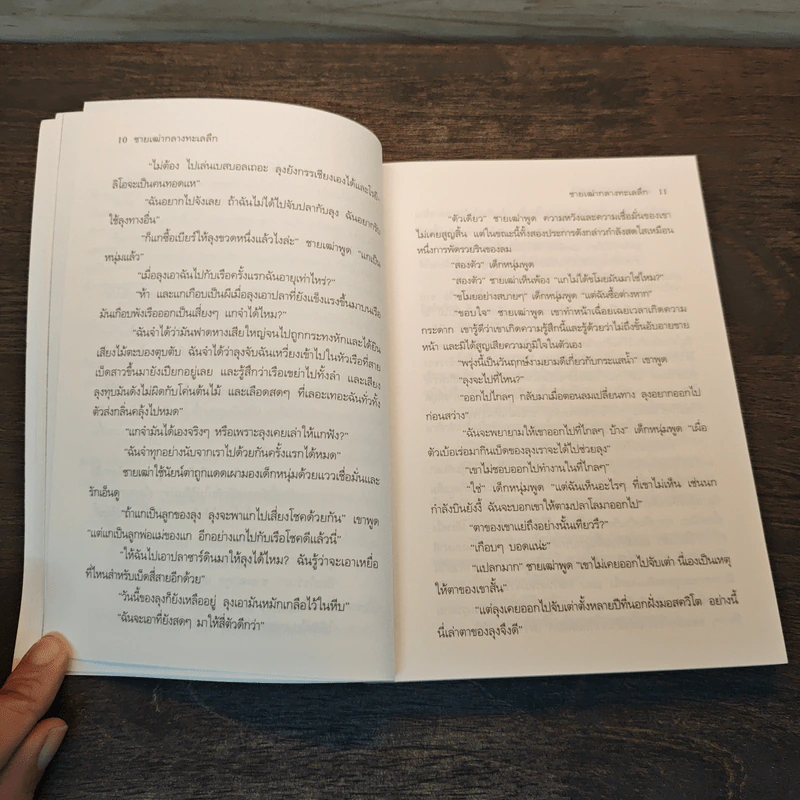 10 ชายเฒ่ากลางทะเลลึก
"ไม่ต้อง ไปเล่นเบสบอลเถอะ ลุงยังกรรเชียงเองได้และโรเจ
ลิโอจะเป็นคนทอดแห"
"ฉันอยากไปจังเลย ถ้าฉันไม่ได้ไปจับปลากับลุง ฉันอยากรับ
ใช้ลุงทางอื่น"
"ก็แกซื้อเบียร์ให้ลุงขวดหนึ่งแล้วไงล่ะ" ชายเฒ่าพูด "แกเป็น
หนุ่มแล้ว"
"เมื่อลุงเอาฉันไปกับเรือครั้งแรกฉันอายุเท่าไหร่?"
"ห้า และแกเกือบเป็นผีเมื่อลุงเอาปลาที่ยังแข็งแรงขึ้นมาบนเรือ
มันเกือบพังเรือออกเป็นเสี่ยงๆ แกจำได้ไหม?"
"ฉันจำได้ว่ามันฟาดหางเสียใหญ่จนไปถูกกระทงหักและได้ยิน
เสียงไม้ตะบองตุบตับ ฉันจำได้ว่าลุงจับฉันเหวี่ยงเข้าไปในหัวเรือที่สาย
เบ็ดสาวขึ้นมายังเปียกอยู่เลย และรู้สึกว่าเรือเขย่าไปทั้งลำ และเสียง
ลุงทุบมันดังไม่ผิดกับโค่นต้นไม้ และเลือดสดๆ ที่เลอะเทอะฉันทั่วทั้ง
ตัวส่งกลิ่นคลุ้งไปหมด"
"แกจำมันได้เองจริงๆ หรือเพราะลุงเคยเล่าให้แกฟัง?"
"ฉันจำทุกอย่างนับจากเราไปด้วยกันครั้งแรกได้หมด"
ชายเฒ่าใช้นัยน์ตาถูกแดดเผามองเด็กหนุ่มด้วยแววเชื่อมั่นและ
รักเอ็นดู
"ถ้าแกเป็นลูกของลุง ลุงจะพาแกไปเสี่ยงโชคด้วยกัน" เขาพูด
"แต่แกเป็นลูกพ่อแม่ของแก อีกอย่างแกไปกับเรือโชคดีแล้วนี่"
"ให้ฉันไปเอาปลาซาร์ดีนมาให้ลุงได้ไหม? ฉันรู้ว่าจะเอาเหยื่อ
ที่ไหนสำหรับเบ็ดสี่สายอีกด้วย"
"วันนี้ของลุงก็ยังเหลืออยู่ ลุงเอามันหมักเกลือไว้ในหีบ"
"ฉันจะเอาที่ยังสดๆ มาให้สี่ตัวดีกว่า"
ชายเฒ่ากลางทะเลลึก 11
"ตัวเดียว" ชายเฒ่าพูด ความหวังและความเชื่อมั่นของเขา
ไม่เคยสูญสิ้น แต่ในขณะนี้ทั้งสองประการดังกล่าวกำลังสดใสเหมือน
หนึ่งการพัดรวยรินของลม
"สองตัว" เด็กหนุ่มพูด
"สองตัว" ชายเฒ่าเห็นพ้อง "แกไม่ได้ขโมยมันมาใช่ไหม?"
"ขโมยอย่างสบายๆ" เด็กหนุ่มพูด "แต่ฉันซื้อต่างหาก"
"ขอบใจ" ชายเฒ่าพูด เขาทำหน้าเฉื่อยเฉยเวลาเกิดความ
กระดาก เขารู้ดีว่าเขาเกิดความรู้สึกนี้และรู้ด้วยว่าไม่ถึงขั้นอับอายขาย
หน้า และมิได้สูญเสียความภูมิใจในตัวเอง
"พรุ่งนี้เป็นวันฤกษ์งามยามดีเกี่ยวกับกระแสน้ำ" เขาพูด
"ลุงจะไปที่ไหน?"
"ออกไปไกลๆ กลับมาเมื่อตอนลมเปลี่ยนทาง ลุงอยากออกไป
ก่อนสว่าง"
"ฉันจะพยายามให้เขาออกไปที่ไกลๆ บ้าง" เด็กหนุ่มพูด "เผื่อ
ตัวเบ้อเร่อมากินเบ็ดของลุงเราจะได้ไปช่วยลุง"
"เขาไม่ชอบออกไปทำงานในที่ไกลๆ"
"ใช่" เด็กหนุ่มพูด "แต่ฉันเห็นอะไรๆ ที่เขาไม่เห็น เช่นนก
กำลังบินยังงี้ ฉันจะบอกเขาให้ตามปลาโลมาออกไป"
"ตาของเขาแย่ถึงอย่างนั้นเทียวรึ?"
"เกือบๆ บอดแน่ะ"
"แปลกมาก" ชายเฒ่าพูด "เขาไม่เคยออกไปจับเต่า นี่เองเป็นเหตุ
ให้ตาของเขาสั้น"
"แต่ลุงเคยออกไปจับเต่าตั้งหลายปีที่นอกฝั่งมอสควิโต อย่างนี้
นี่เล่าตาของลุงจึงดี"